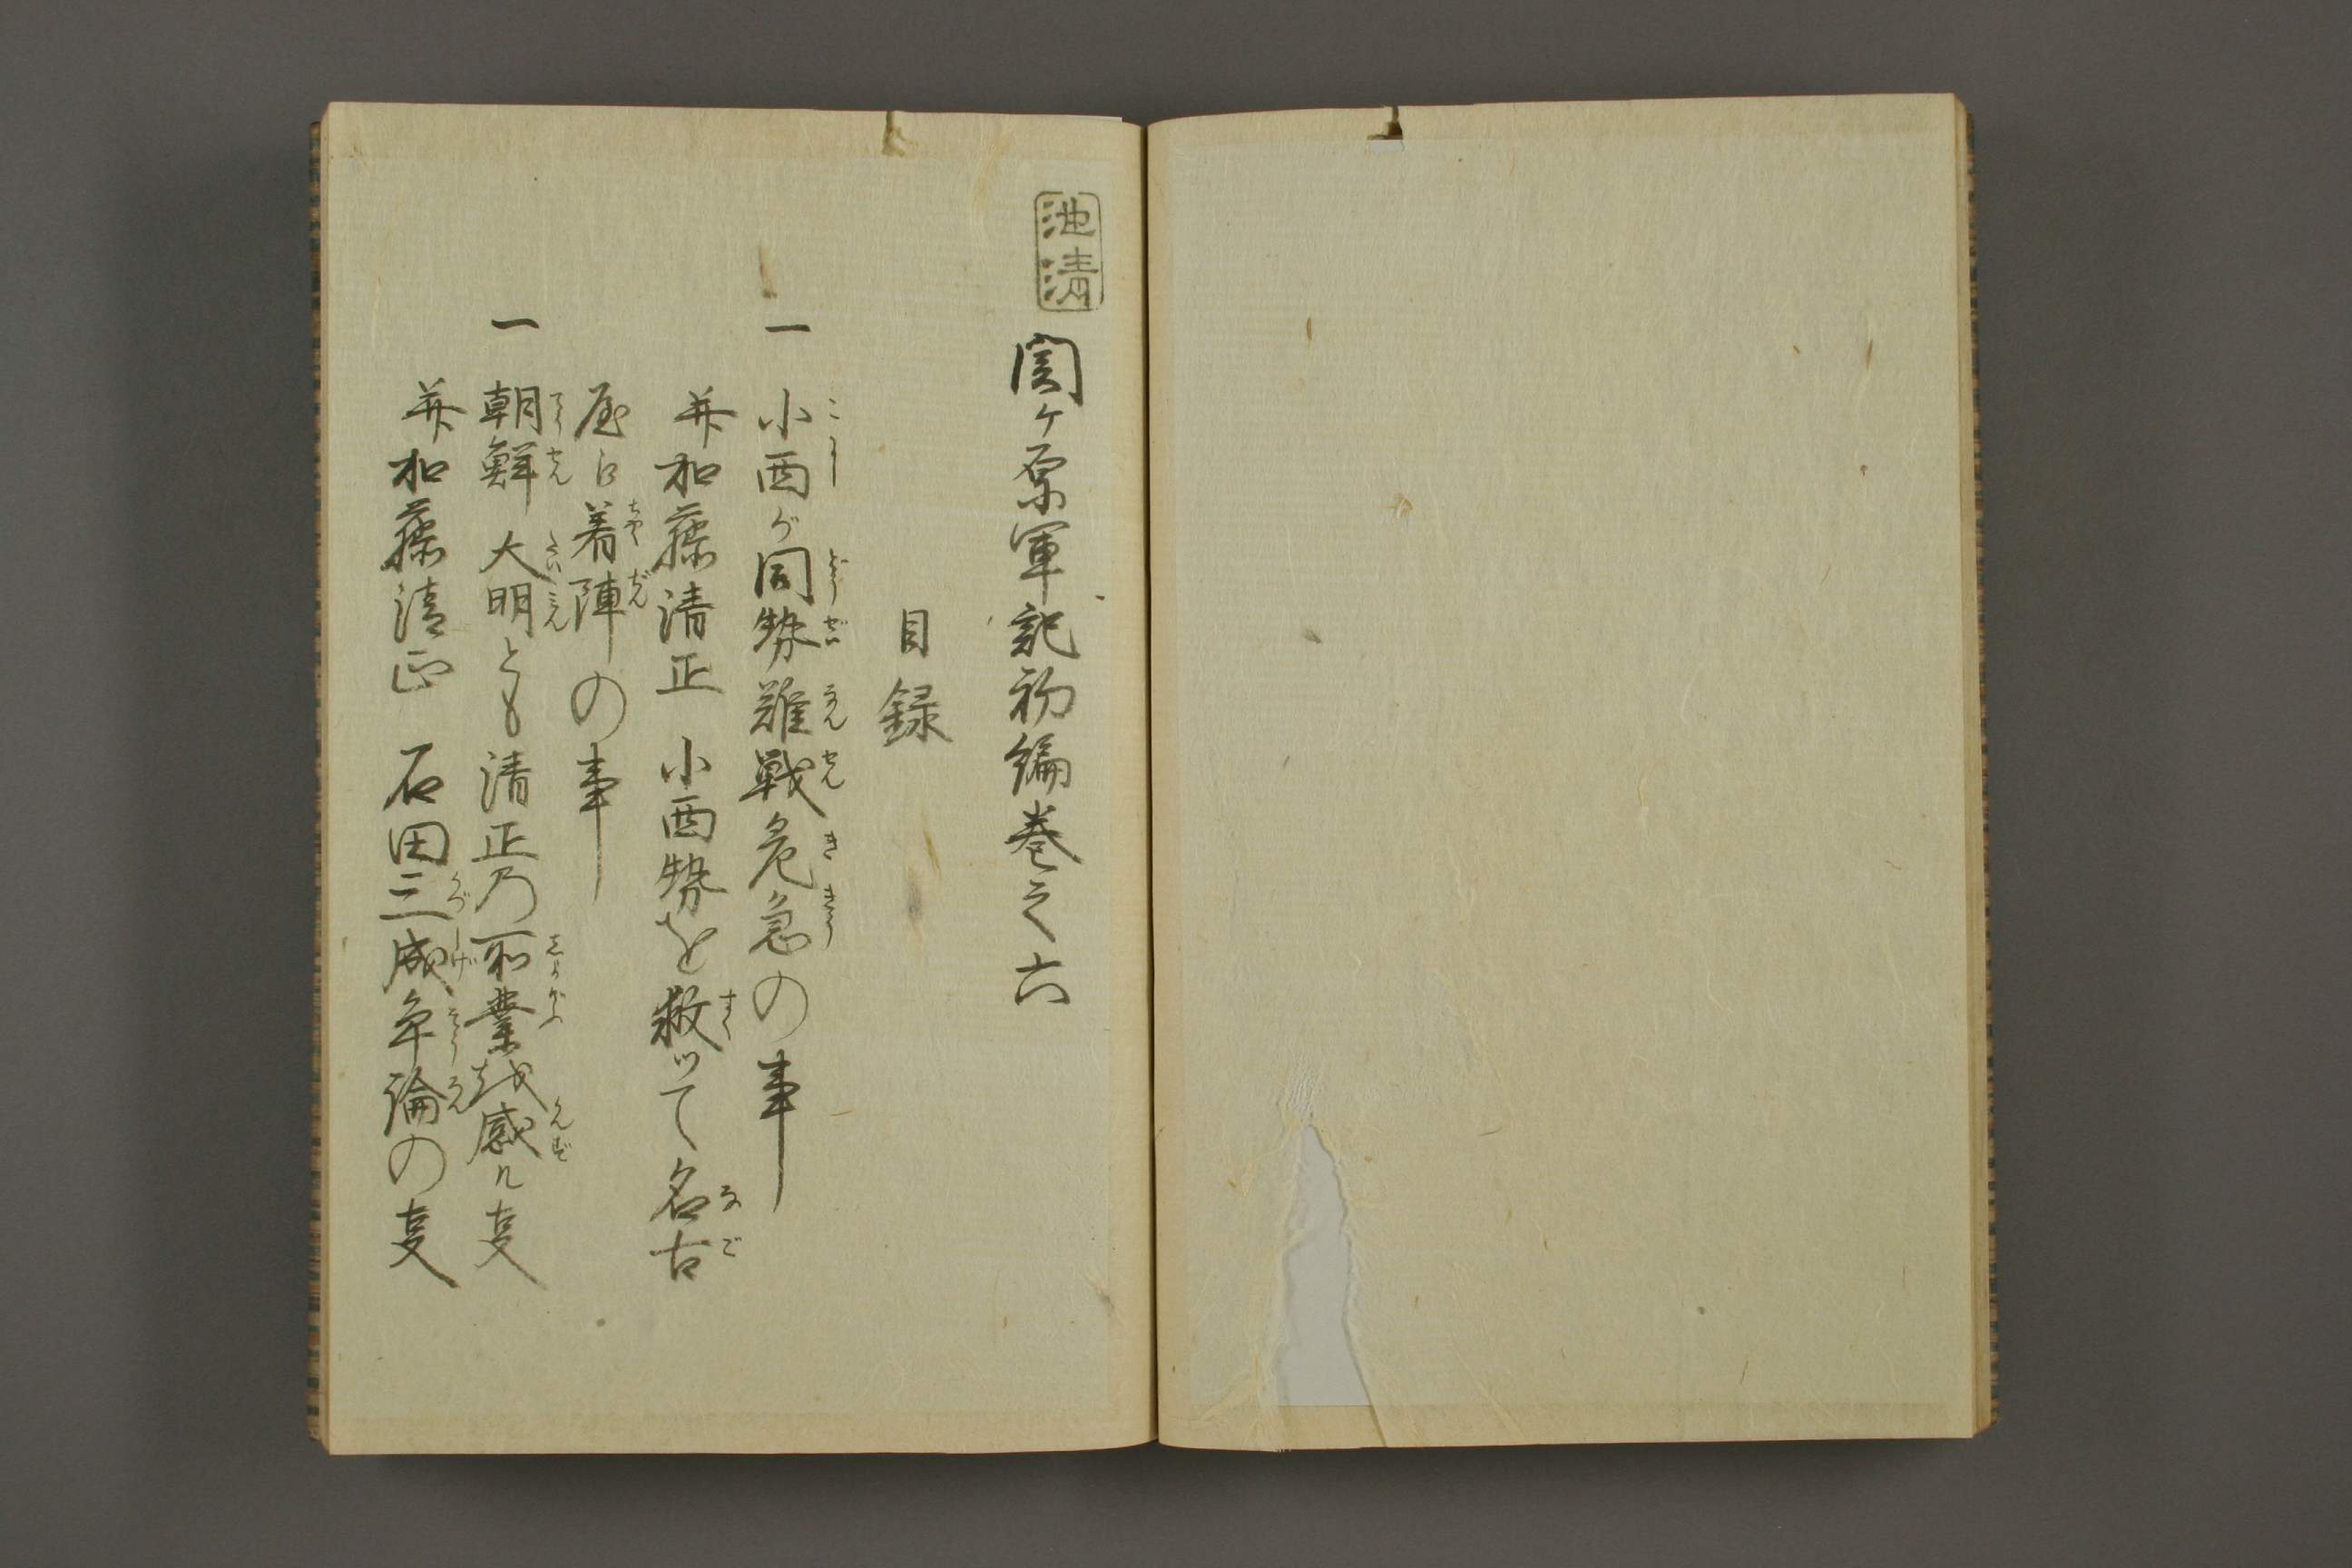 池清
関ヶ原軍記初編巻之六
目録
一 小西が同勢難戦危急の事
并加藤清正 小西勢を救ッて名古
屋に着陣の事
一 朝鮮大明とも清正乃所業越感ル㕝
并加藤清正 石田三成争論の㕝